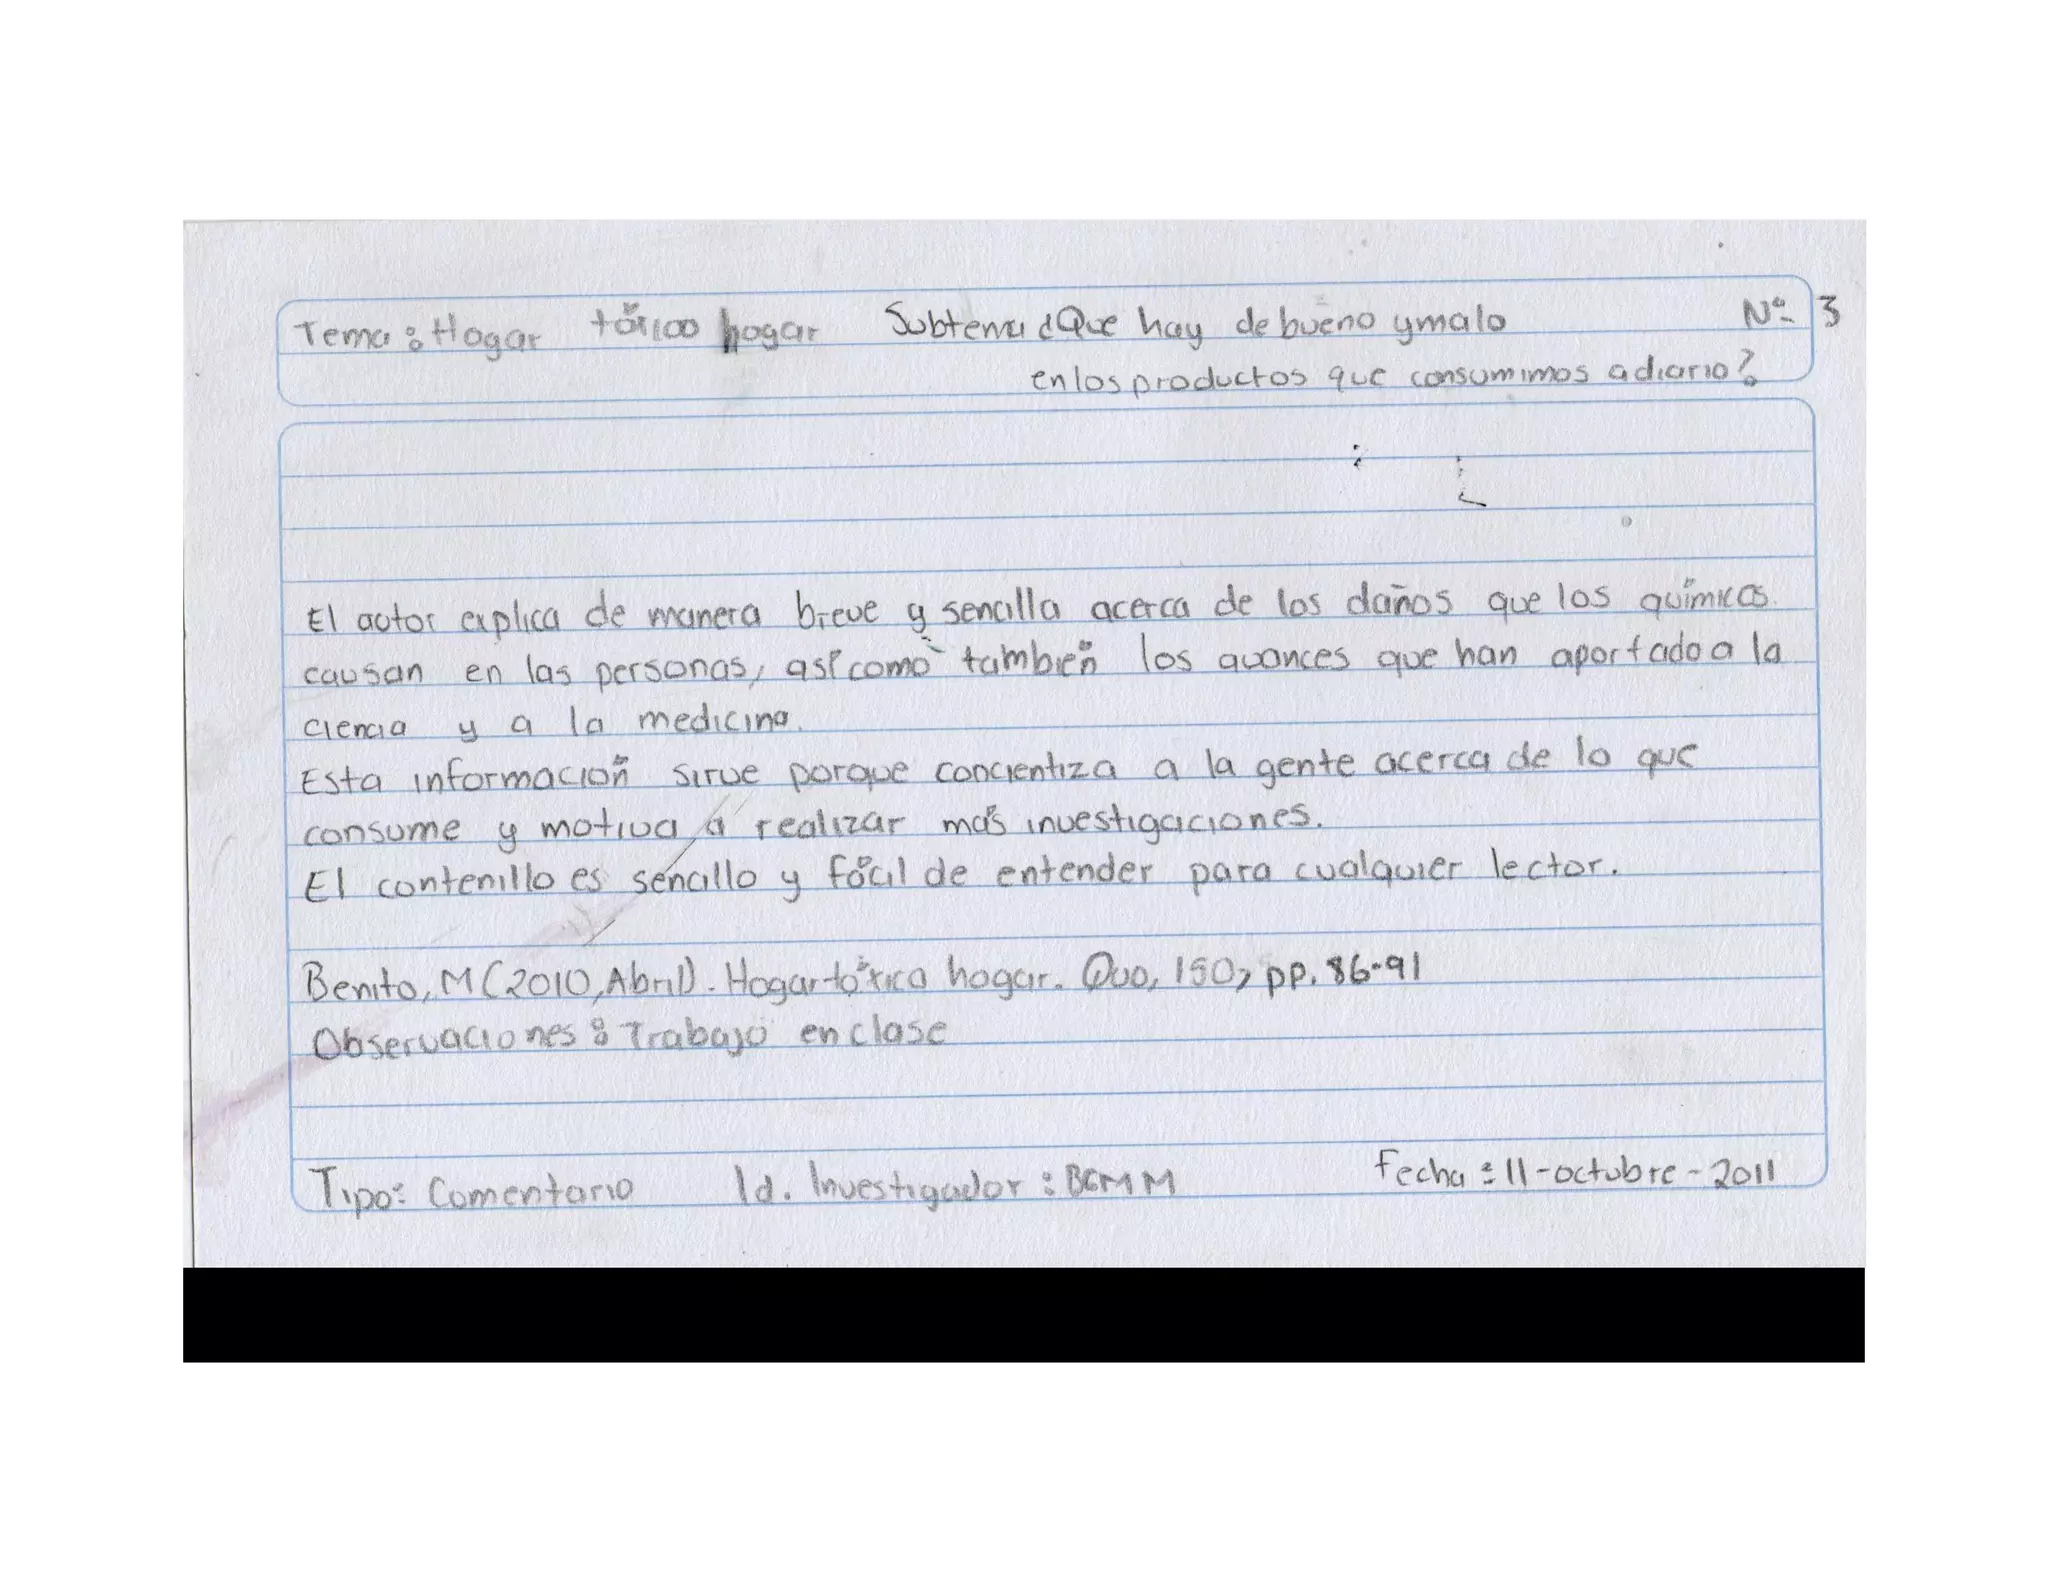 Tema: Hogar tóxico hogar Subtema ¿Que hay de bueno y malo Nº 3
en los productos que consumimos a diario?
El autor explica de manera breve y sencilla acerca de los daños que los químicos
causan en las personas, así como también los avances que han aportado a la
ciencia y a la medicina.
Esta información sirve porque concientiza a la gente acerca de lo que
consume y motiva a realizar más investigaciones.
El contenillo es sencillo y fácil de entender para cualquier lector.
Benito, M (2010, Abril). Hogar tóxico hogar. Quo, 150, pp. 86-91
Observaciones: Trabajo en clase
Tipo: Comentario Id. Investigador: BGMM Fecha: 11-octubre-2011